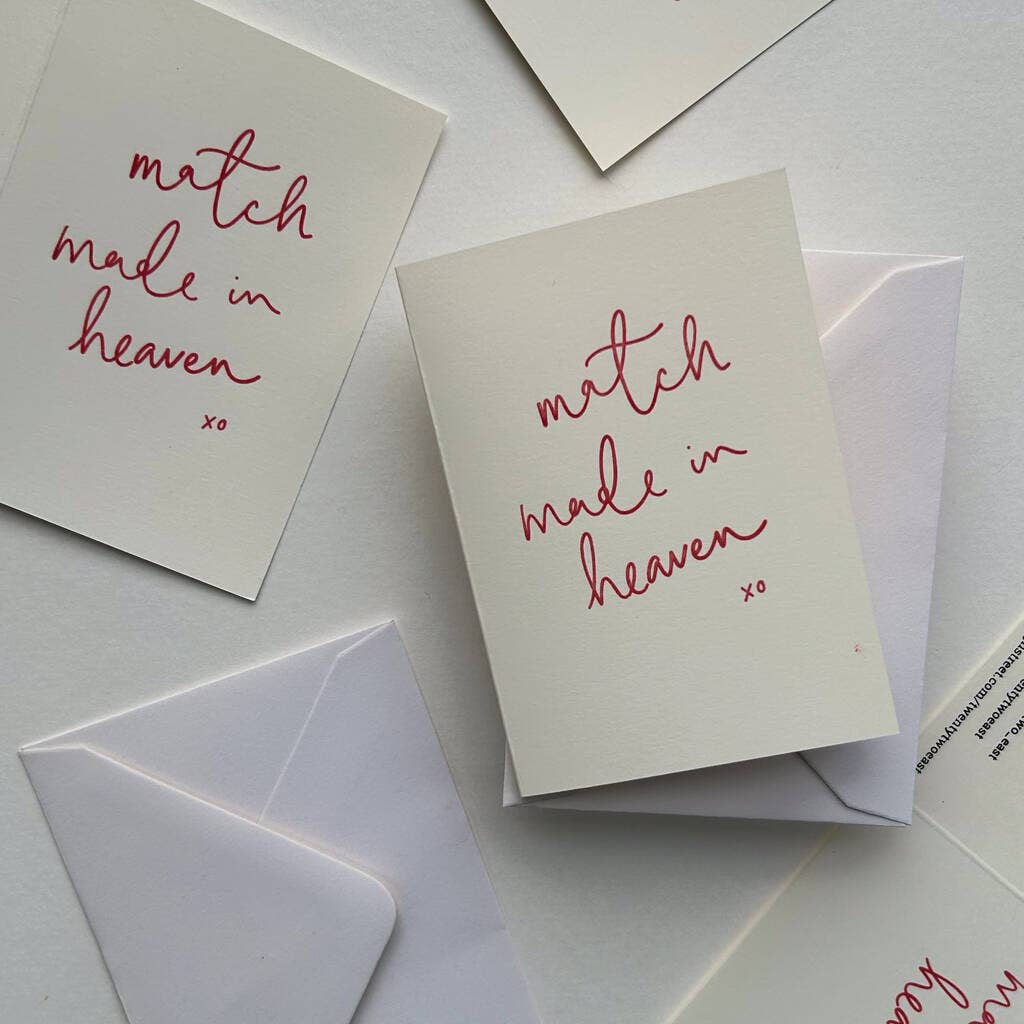 match
made in
heaven
xo
match
made in
heaven
xo
street.com/twentytwoeast
twentytwoeast
two_east
hea